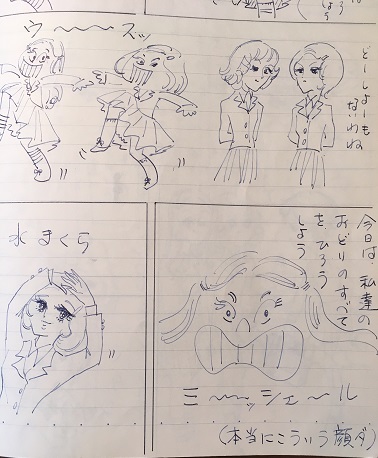 どーしよーも
ないわね
ウ〜〜ズッ
今日は、私達の
おどりのすべて
を、ひろう
しよう
ミ〜〜ッシェ〜ル
(本当にこういう顔ダ)
水まくら